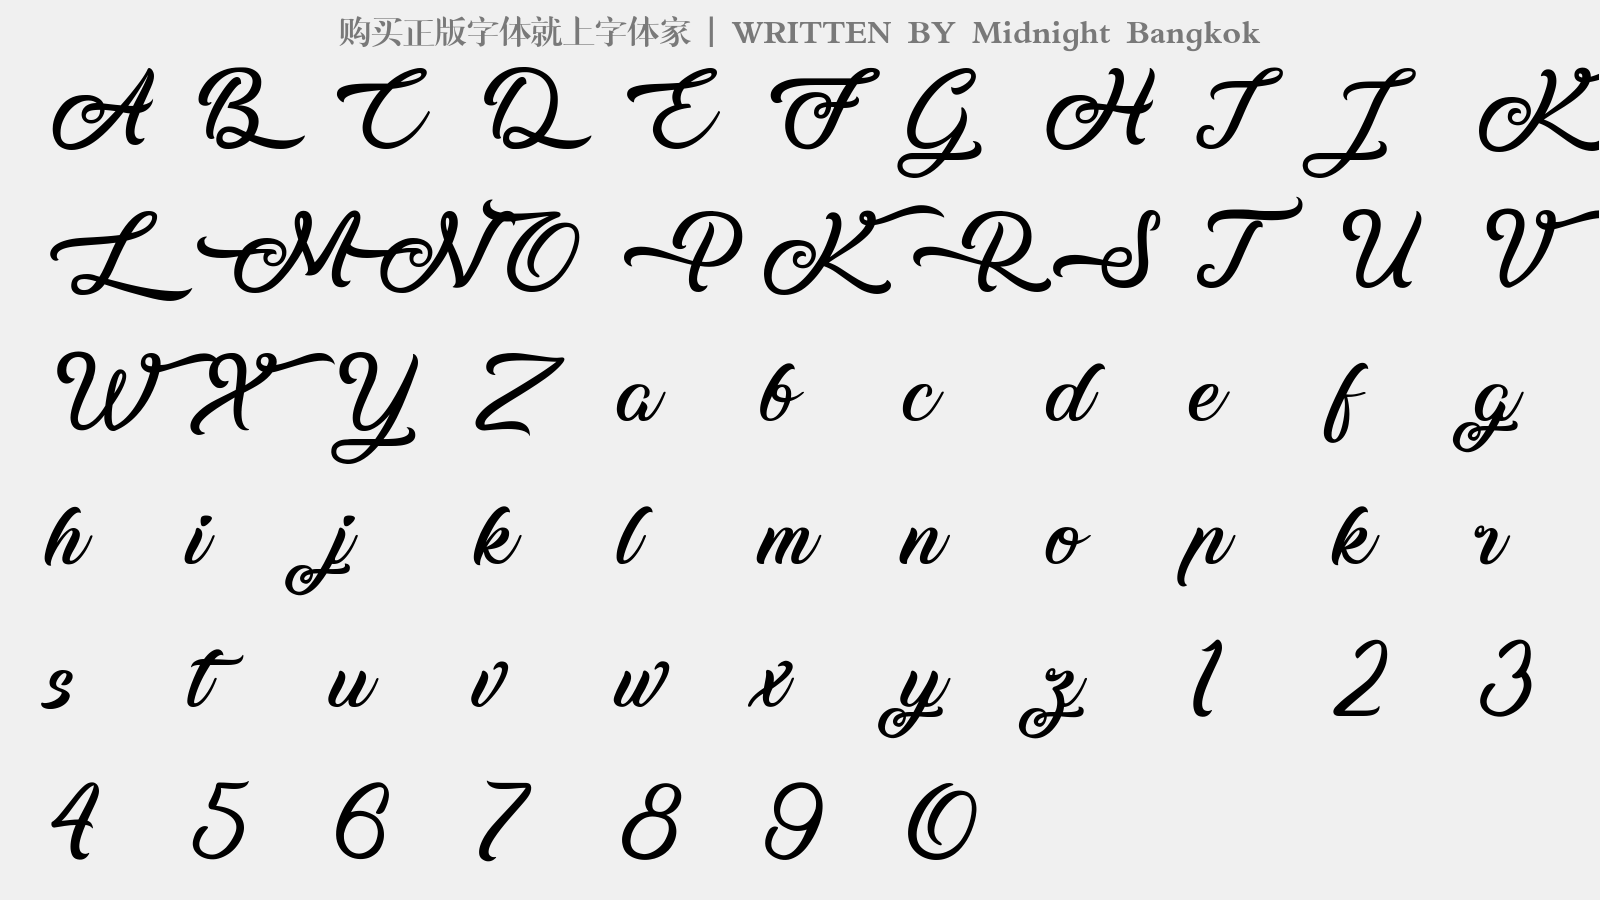 购买正版字体就上字体家 | WRITTEN BY Midnight Bangkok
A B C D E F G H I J K
L M N O P K R S T U V
W X Y Z a b c d e f g
h i j k l m n o p k r
s t u v w x y z 1 2 3
4 5 6 7 8 9 0